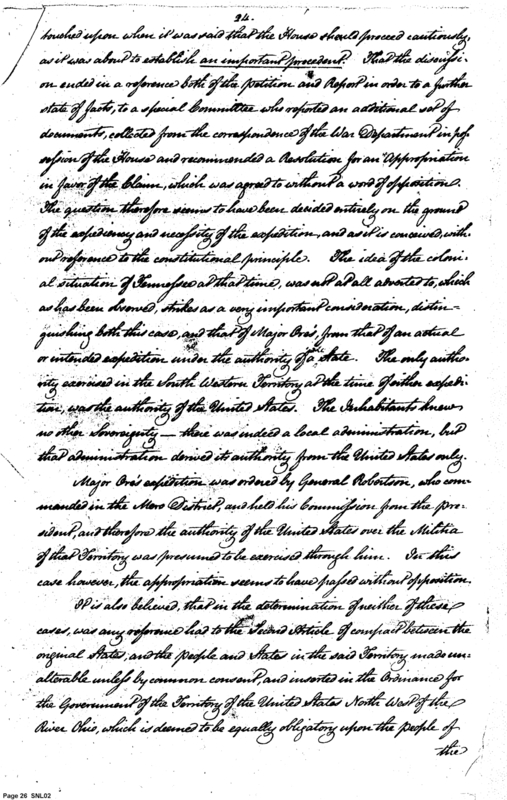 24.
touched upon when it was said that the House should proceed cautiously,
as it was about to establish an important precedent. That the discussi-
on ended in a reference both of the Petition and Report in order to a further
state of facts, to a special Committee who reported an additional set of
documents, collected from the correspondence of the War Department in pos-
session of the House and recommended a Resolution for an Appropriation
in favor of the Claim, which was agreed to without a word of opposition.
The question therefore seems to have been decided entirely on the ground
of the expediency and necessity of the expedition, and as it is conceived, with-
out reference to the constitutional principle. The idea of the coloni-
al situation of Tennessee at that time, was not at all adverted to, which
as has been observed, strikes as a very important consideration, distin-
guishing both this case, and that of Major Ore's, from that of an actual
or intended expedition under the authority of a State. The only autho-
rity exercised in the South Western Territory at the time of either expedi-
tion, was the authority of the United States. The Inhabitants knew
no other Sovereignty — there was indeed a local administration, but
that administration derived its authority from the United States only.
Major Ore's expedition was ordered by General Robertson, who com-
manded in the Mero District, and held his Commission from the Pre-
sident, and therefore the authority of the United States over the Militia
of that Territory was presumed to be exercised through him. In this
case however, the appropriation seems to have passed without opposition.
It is also believed, that in the determination of neither of these
cases, was any reference had to the Second Article of compact between the
original States, and the people and States in the said Territory made un-
alterable unless by common consent, and inserted in the Ordinance for
the Government of the Territory of the United States North West of the
River Ohio, which is deemed to be equally obligatory upon the people of
the
Page 26 SNL02